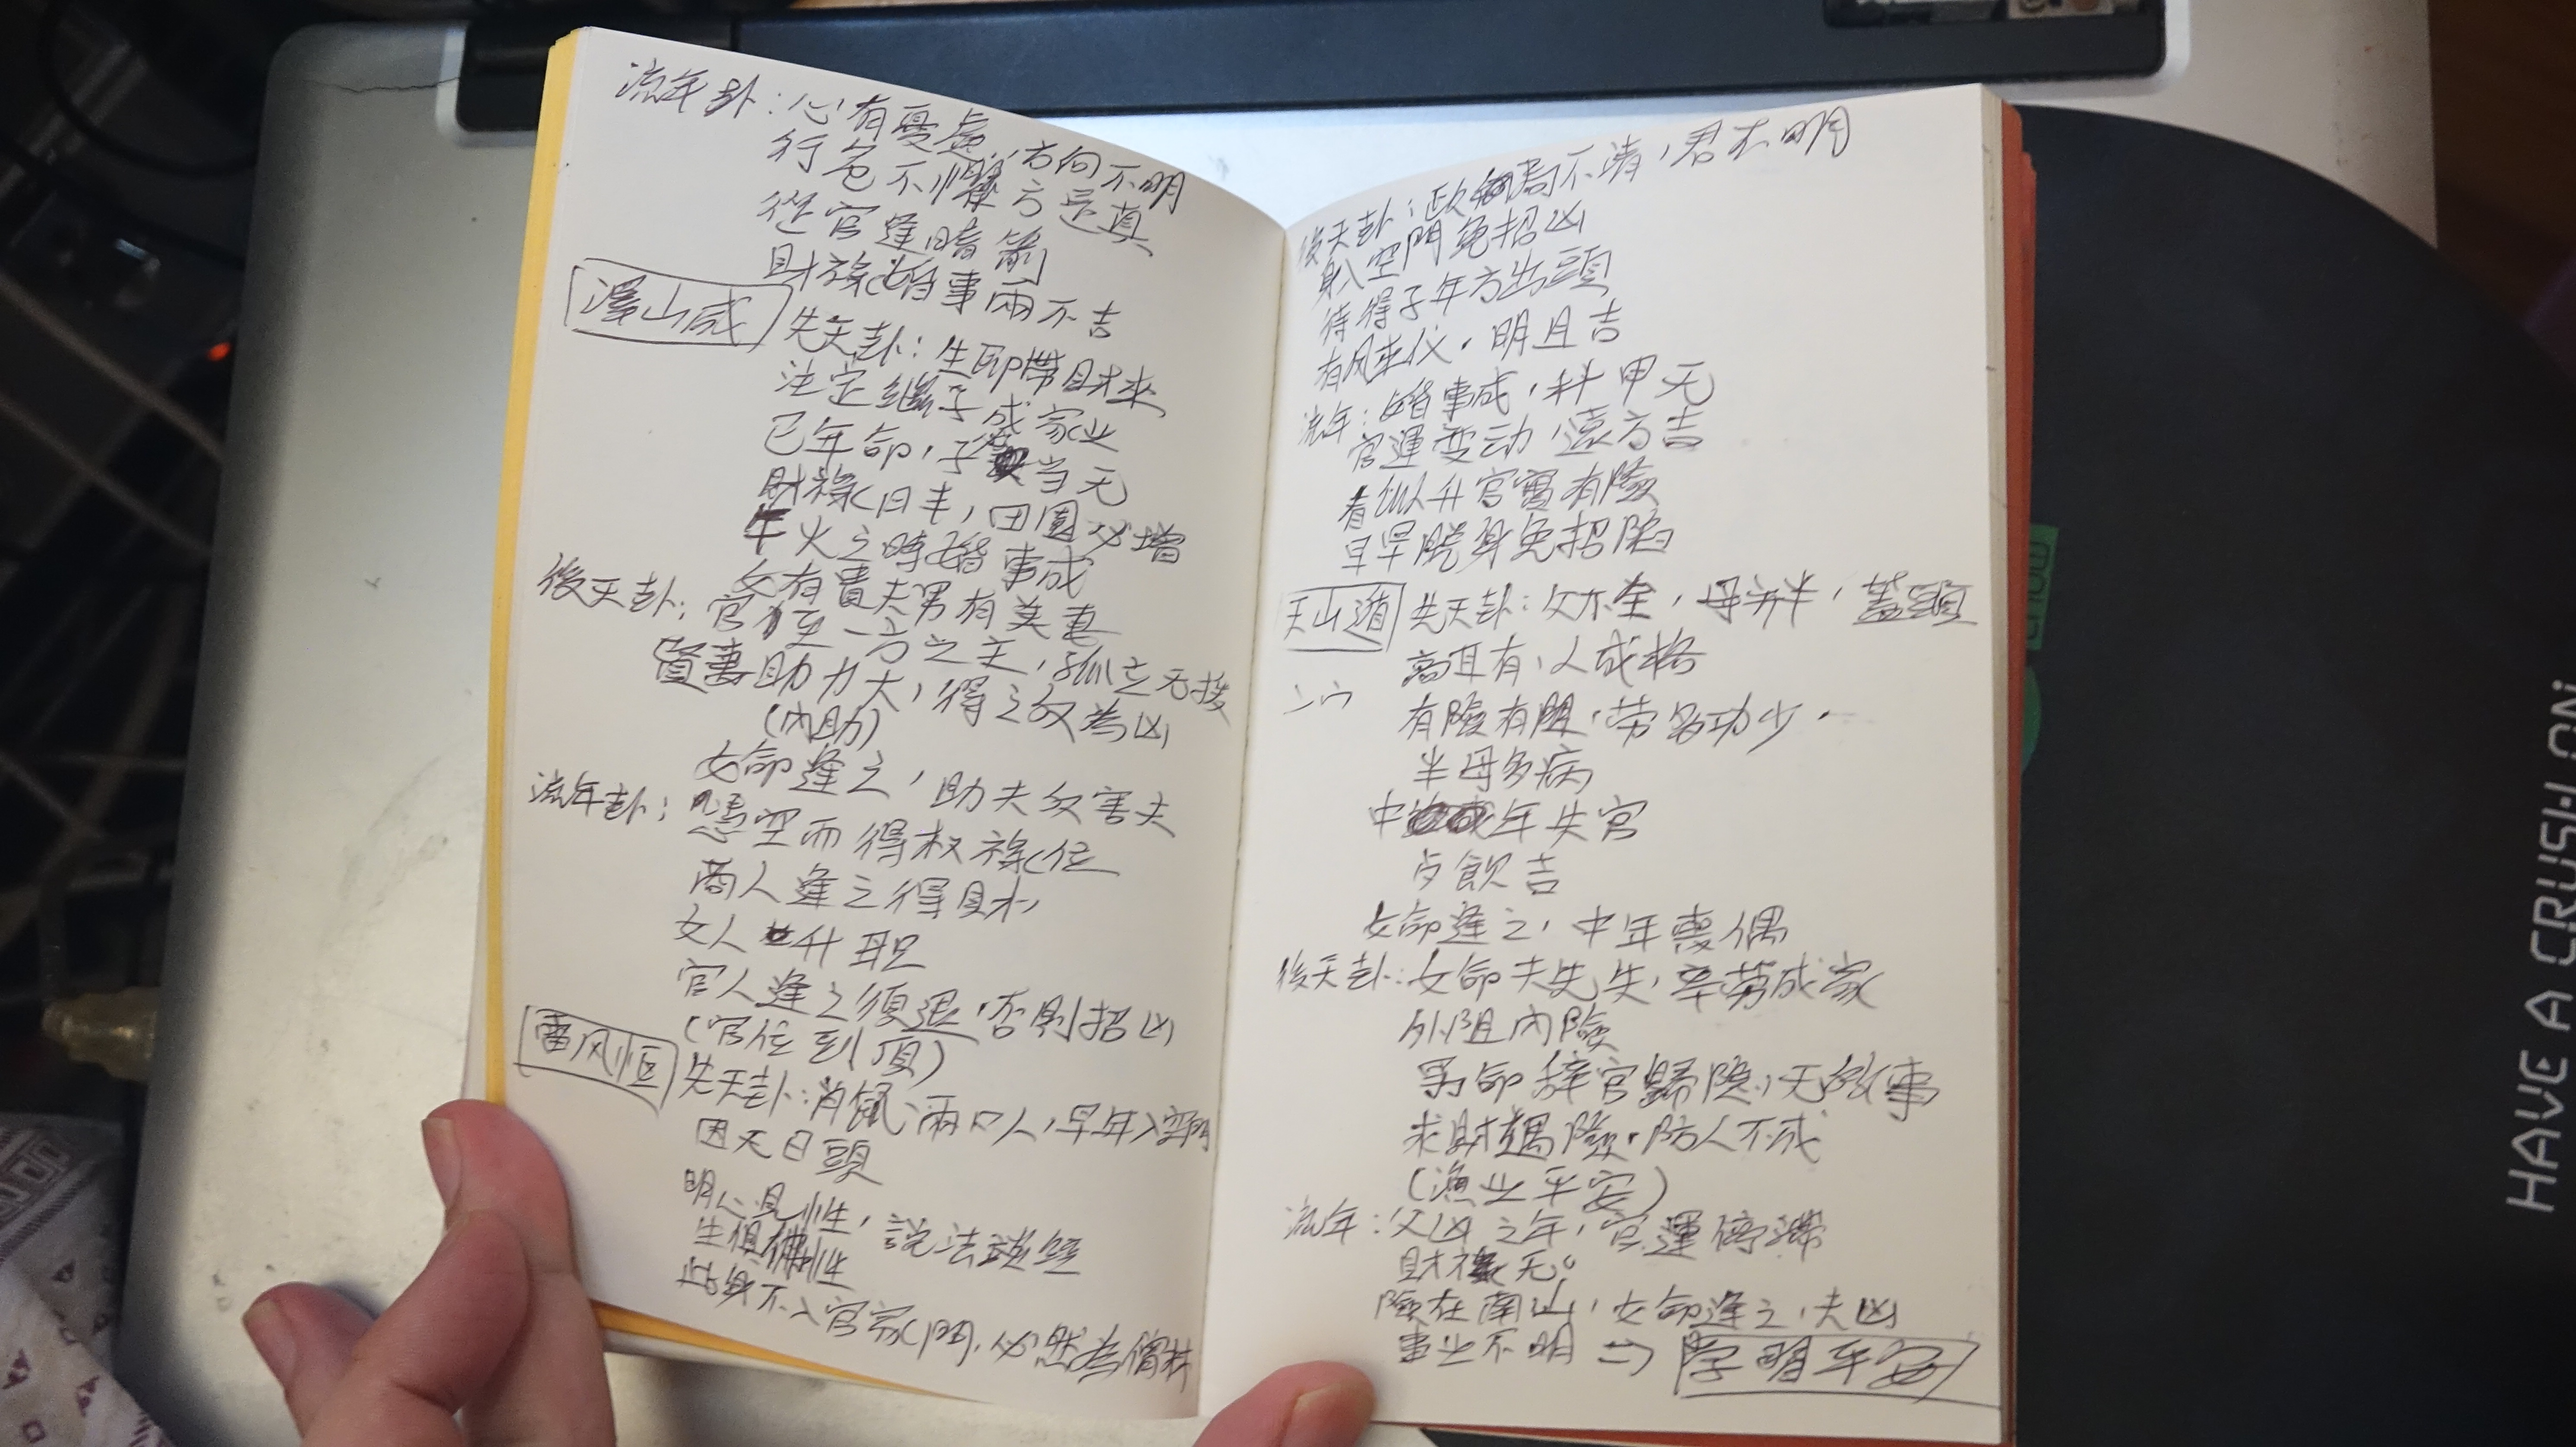 流年卦：心有憂慮，方向不明
行色不懼方是真
從官逢暗箭
財祿婚事兩不吉
澤山咸
先天卦：生即帶財來
注定繼子成家业
已年命，子當无
財祿日丰，田園必增
午火之時婚事成
女有貴夫男有美妻
後天卦：官位至一方之主，孤立无援
賢妻助力大，得之反為凶
(內助)
女命逢之，助夫反害夫
流年卦：憑空而得权祿位
商人逢之得財，
女人升职
官人逢之須退，否則招凶
(官位到頂)
雷风恒
先天卦：肖鼠，兩口人，早年入空門
因天日頭
明心見性，說法談經
生俱佛性
此身不入官家門，必然為僧
後天卦：政局不清，君不明
身入空門免招凶
待得子年方出頭
有风来仪，明且吉
流年：婚事成，科甲无
官運变动，遠方吉
看似升官實有險
早早脫身免招陷
天山遁
先天卦：父不全，母亦半，蓋頭
高且有，人成格
有險有阻，劳多功少，
半母多病
中年失官
女命逢之，中年喪偶
後天卦：女命夫先失，辛劳成家
外阻內險
男命辞官歸隐，无啟事
求財遇險，防人不成
(漁业平安)
流年：父凶之年，官運停滯
財祿无。
險在南山，女命逢之，夫凶
事业不明 => 字明平安
HAVE A CRUSH ON